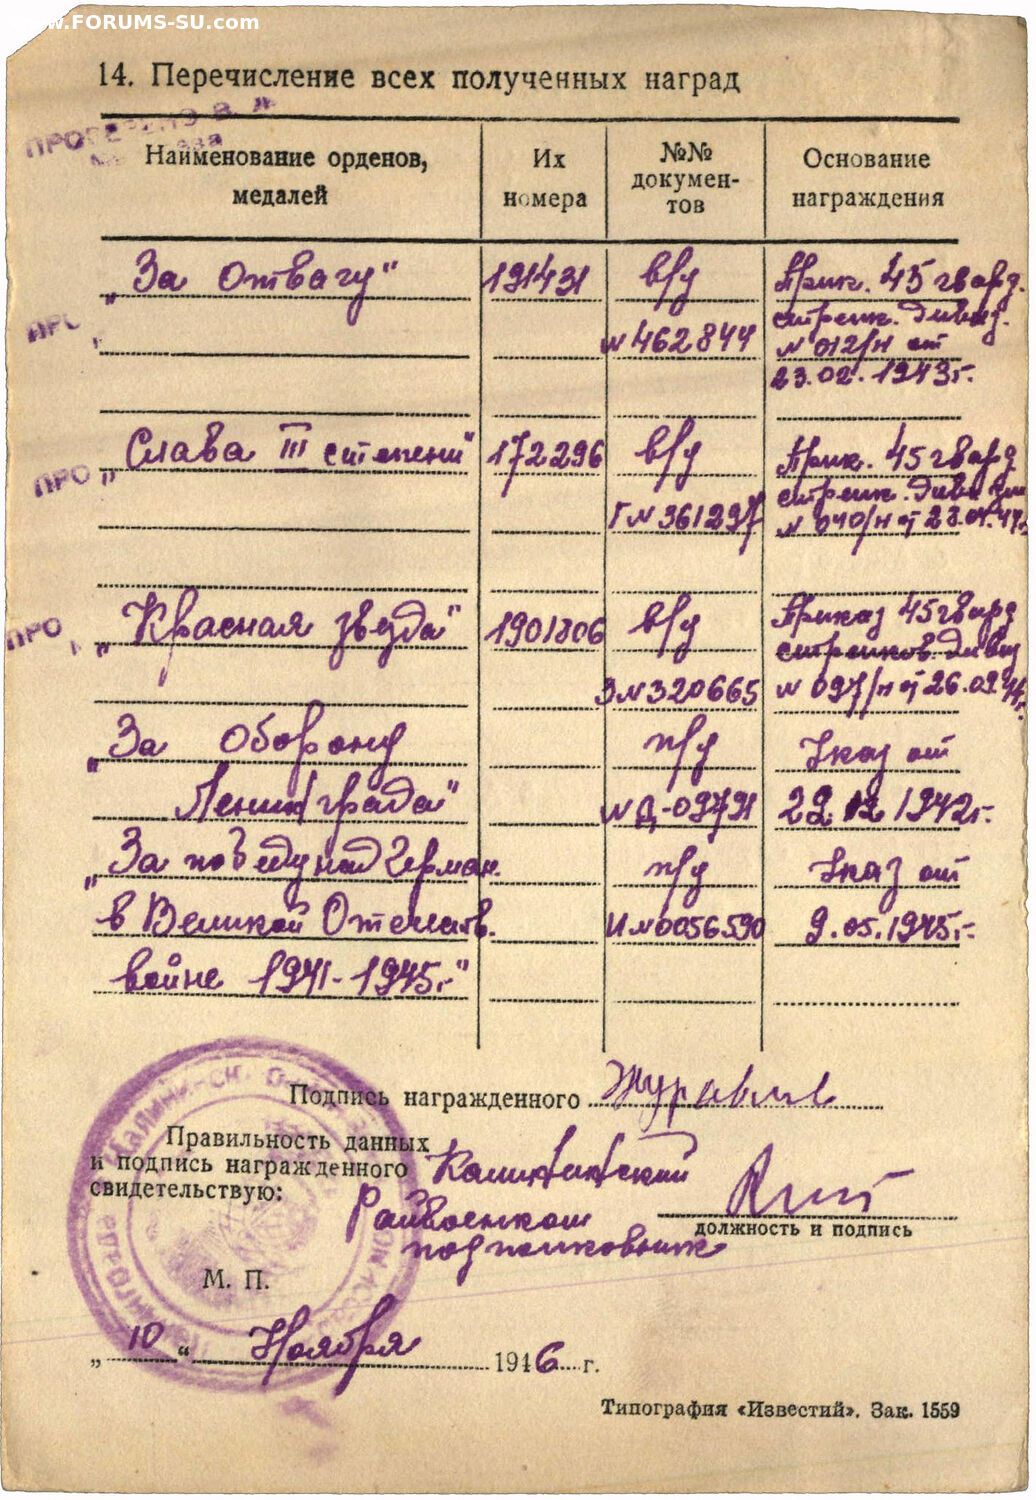 www.FORUMS-SU.com
14. Перечисление всех полученных наград
Наименование орденов, медалей
Их номера
№№ докумен-тов
Основание награждения
„За Отвагу" 191431 в/у Прик. 45 гвард.
стрелк. дивиз.
№462844 №012/н от
23.02.1943г.
„Слава III степени" 172296 в/у Прик. 45 гвард
стрелк. дивизии
Г№361297 №040/н от 28.01.44г.
„Красная звезда" 1901806 в/у Приказ 45 гвард
стрелков. дивиз
З№320665 №097/н от 26.09.44г.
„За Оборону п/у Указ от
Ленинграда" №Д-09791 22.12.1942г.
„За победу над Герман. п/у Указ от
в Великой Отечеств. И№0056590 9.05.1945г.
войне 1941-1945г."
Подпись награжденного Журавлев
Правильность данных
и подпись награжденного
свидетельствую:
Калининский
Райвоенком
подполковник
должность и подпись
М. П.
„10" Ноября 1946 г.
Типография «Известий». Зак. 1559